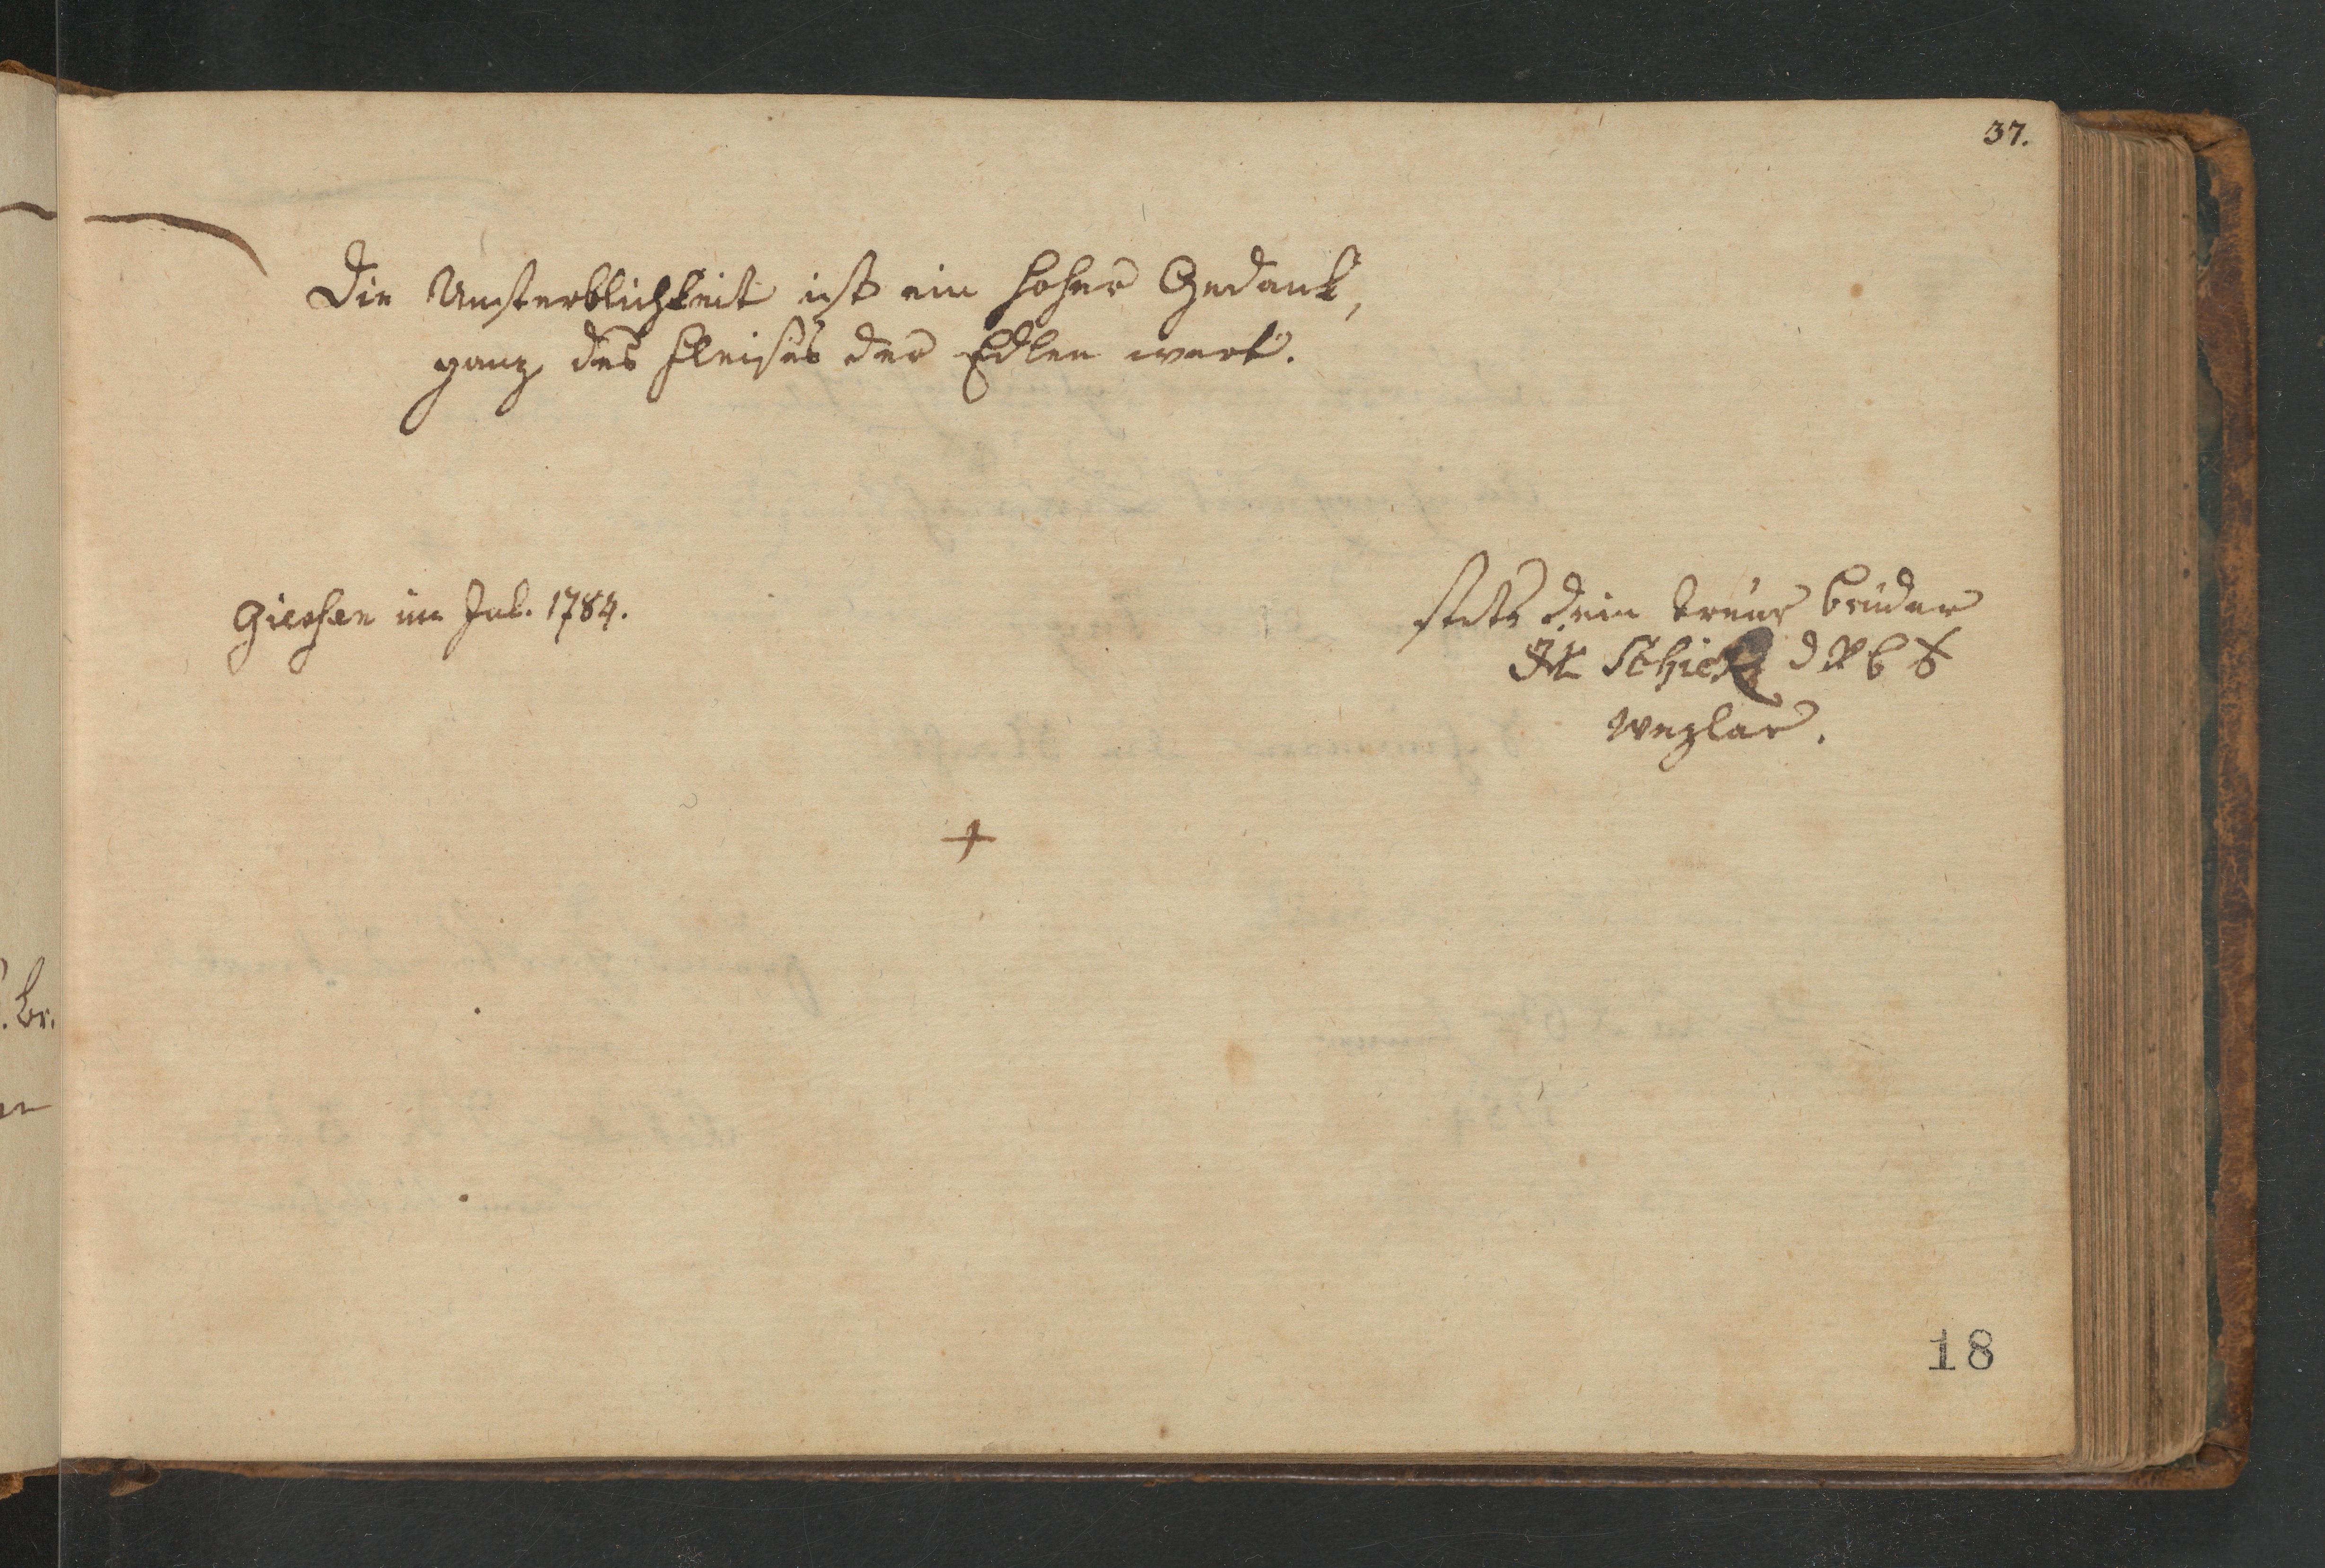 37.
Die Unsterblichkeit ist ein hoher Gedank,
ganz des Fleises der Edlen wert.
Giessen im Jul. 1784.
stets dein treuer Bruder
Schick
Wezlar.
Br.
18